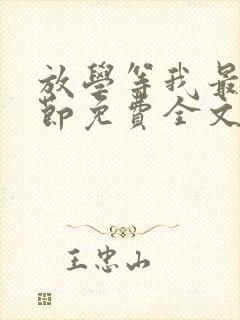 放學等我最
節免費全文
王忠山